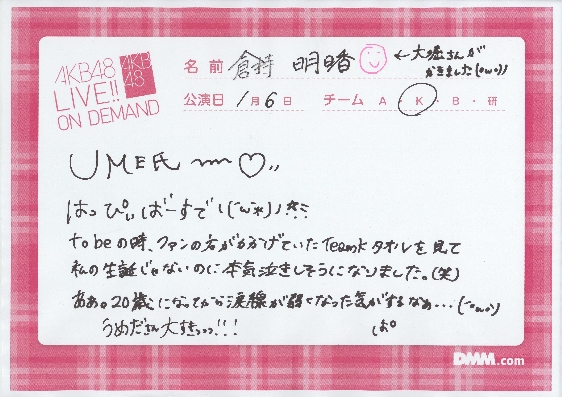 AKB48
LIVE!!
ON DEMAND
AKB
48
名前 倉持 明日香 ←大堀さんが
かきました(・ω・)
公演日 1月6日 チーム A・K・B・研
UME氏 〜〜♡,,
はっぴぃばーすでー
to beの時、ファンの方がかかげていたTeamKタオルを見て
私の生誕じゃないのに本気泣きしそうになりました。(笑)
ああ。20歳になってから涙線が弱くなった気がするなぁ…(・ω・)
うめださん大すきっっ!!! ぱ。
DMM.com